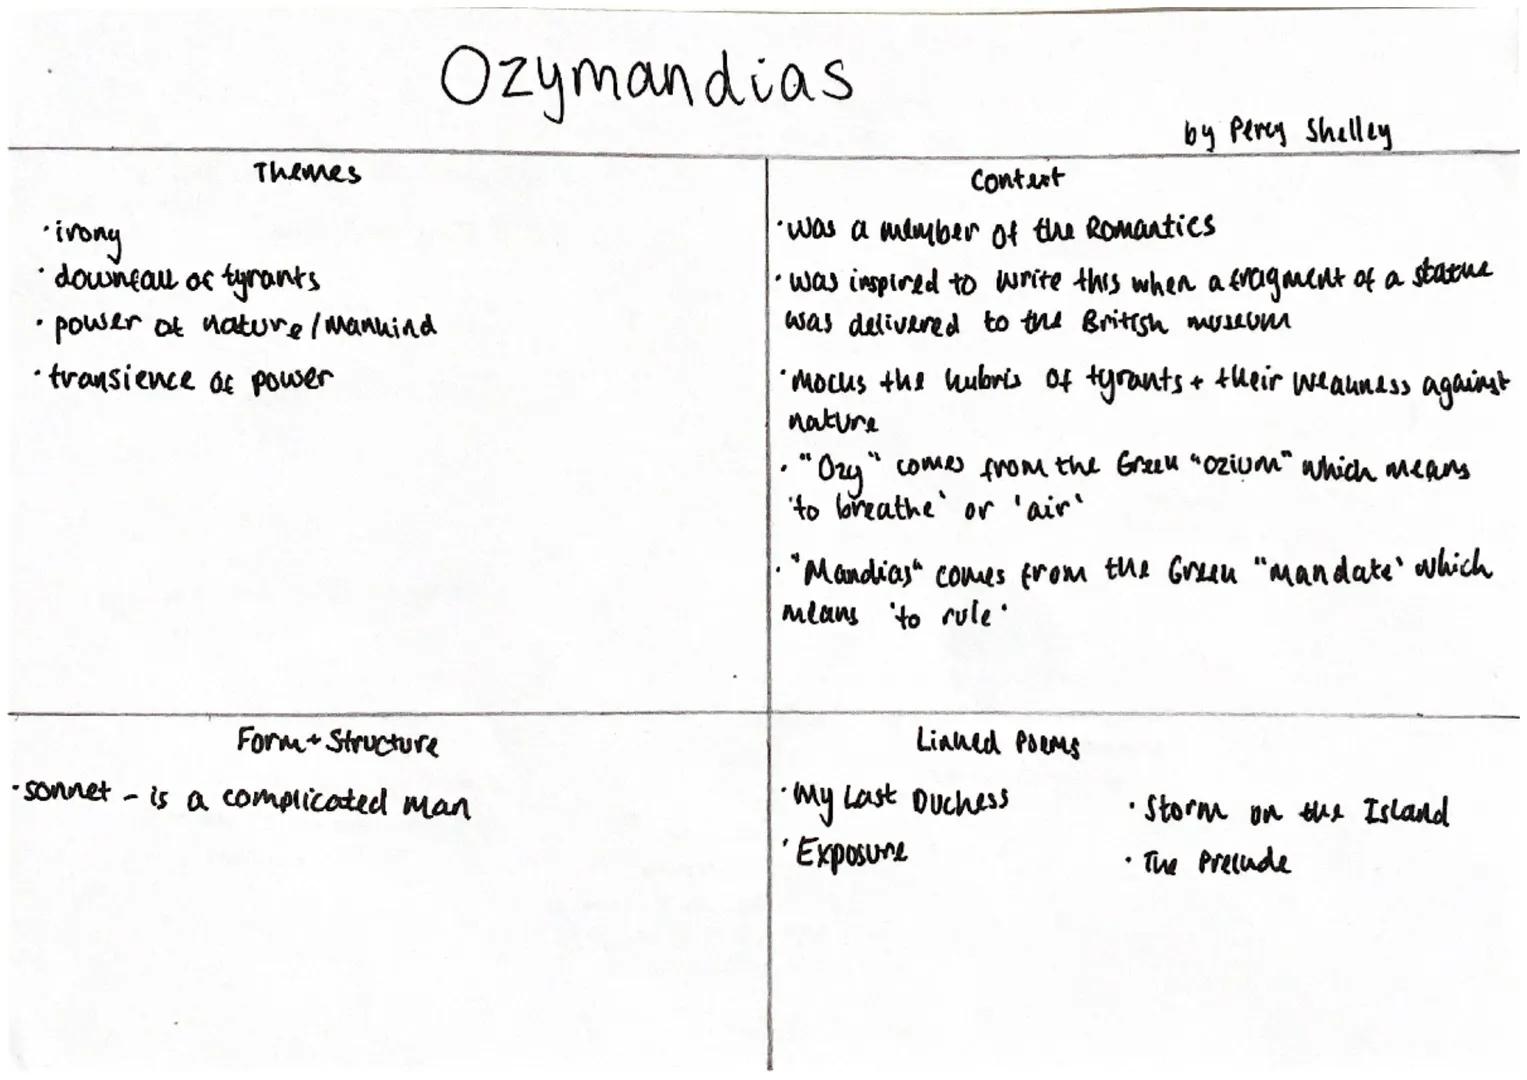 Ozymandias
by Percy Shelley
Themes
· irony
· downfall of tyrants
· power of nature/mankind
· transience of power
Context
· was a member of the Romantics
· was inspired to write this when a fragment of a statue
was delivered to the British museum
· Mocks the hubris of tyrants + their weakness against
nature
· "Ozy" comes from the Greek "ozium" which means
'to breathe' or 'air'
· "Mandias" comes from the Greek "mandate' which
means 'to rule'
Form + Structure
· sonnet - is a complicated man
Linked Poems
· My Last Duchess
· Exposure
· Storm on the Island
· The Prelude